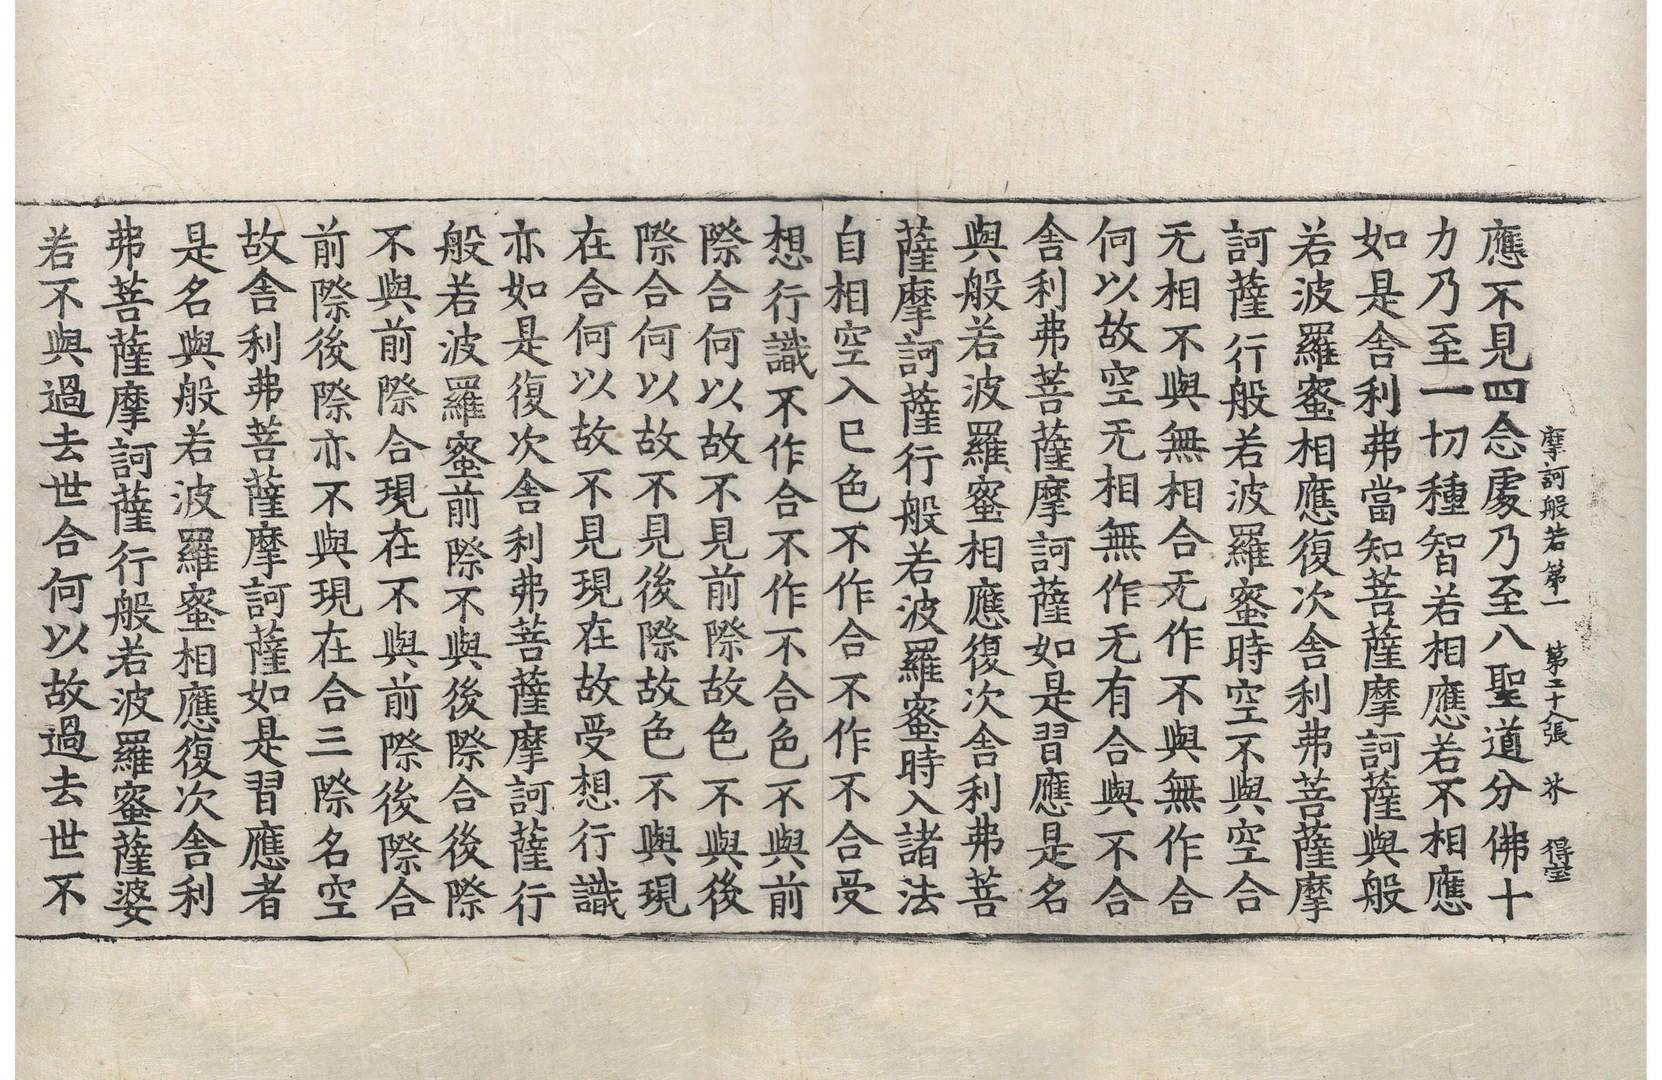 摩訶般若第一　第二十八張　芥　得
應不見四念處乃至八聖道分佛十
力乃至一切種智若相應若不相應
如是舍利弗當知菩薩摩訶薩與般
若波羅蜜相應復次舍利弗菩薩摩
訶薩行般若波羅蜜時空不與空合
无相不與無相合无作不與無作合
何以故空无相無作无有合與不合
舍利弗菩薩摩訶薩如是習應是名
與般若波羅蜜相應復次舍利弗菩
薩摩訶薩行般若波羅蜜時入諸法
自相空入已色不作合不作不合受
想行識不作合不作不合色不與前
際合何以故不見前際故色不與後
際合何以故不見後際故色不與現
在合何以故不見現在故受想行識
亦如是復次舍利弗菩薩摩訶薩行
般若波羅蜜前際不與後際合後際
不與前際合現在不與前際後際合
前際後際亦不與現在合三際名空
故舍利弗菩薩摩訶薩如是習應者
是名與般若波羅蜜相應復次舍利
弗菩薩摩訶薩行般若波羅蜜薩婆
若不與過去世合何以故過去世不